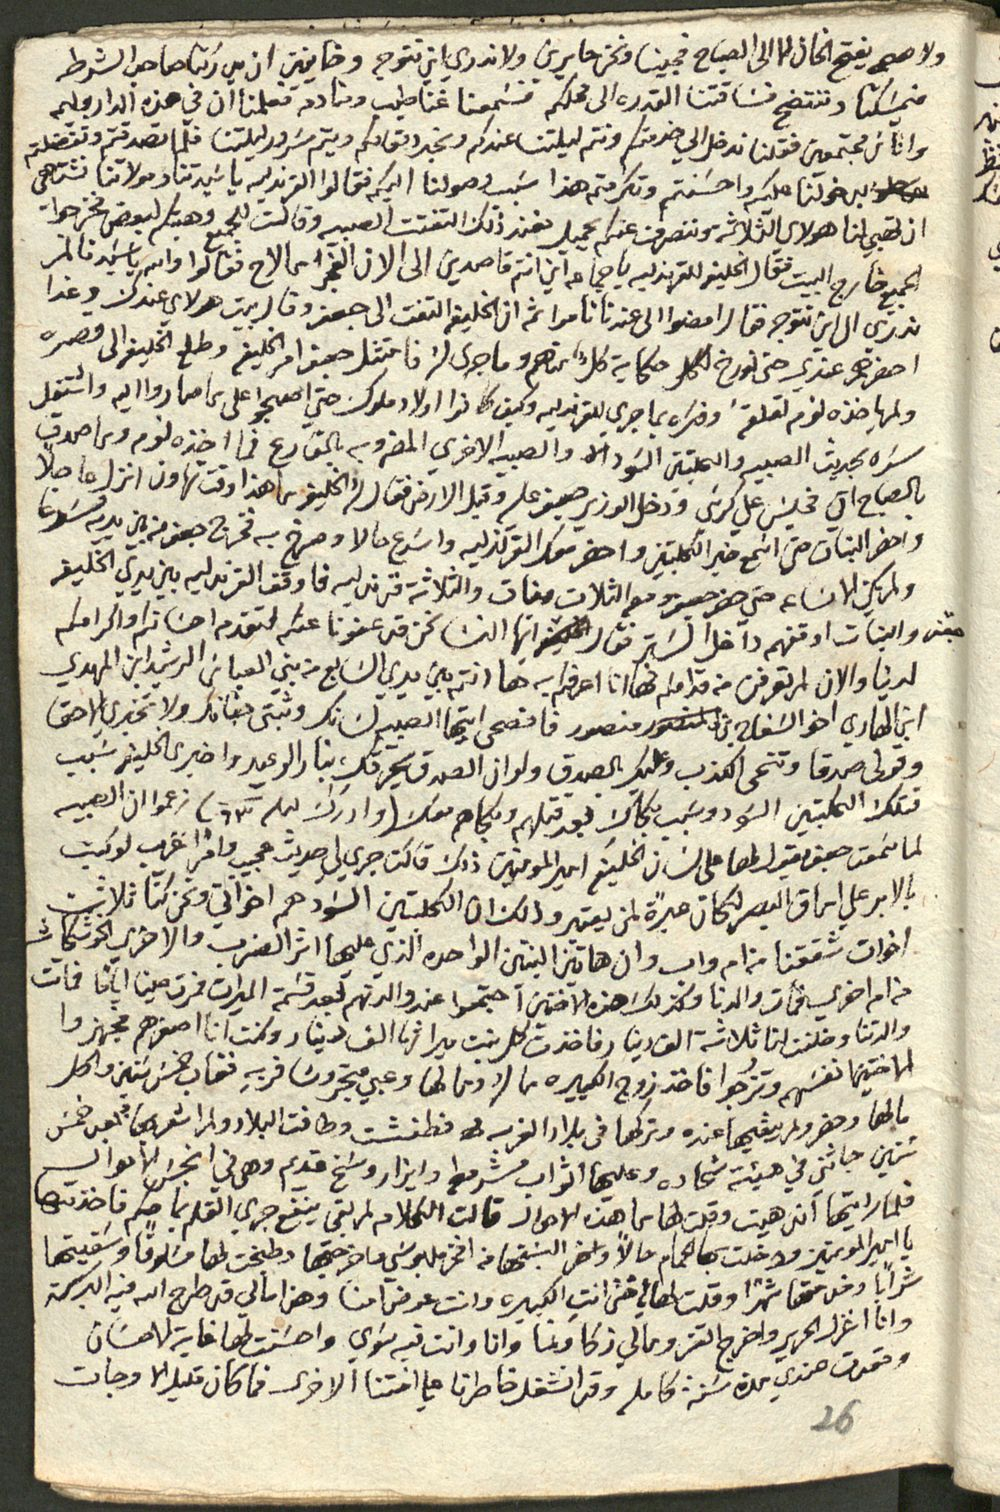 ولا عمره يفتح الخان الا الى الصباح فجينا ونحن حايرين ولا ندري اين نتوجه وخايفين ان يدركنا صاحب الشرط
فيمسكنا وننفضح فساقتنا القدره الى محلكم فسمعنا غنا طيب ومنادمه فعلمنا ان في هذه الدار وليمه
واناس مجتمعين فقلنا ندخل الي خدمتكم ونتم ليلتنا عندكم ونجدد مقامكم ويتم سرور ليلتنا فلما تصدقتم وتفضلتم
بدخولنا عليكم واحسنتم وتكرمتم هذا سبب وصولنا اليكم فقالوا القرندليه يا سيدتنا ومولاتنا نشتهي
ان تهبي لنا هولاي الثلاثه وننصرف عنكم بجميل فعند ذلك التفتت الصبيه وقالت للجميع وهبتكم لبعض فخرجوا
الجميع خارج البيت فقال الخليفه للقرندليه يا جماعه اين انتم قاصدين الى الان الفجر ما لاح فقالوا والله يا سيدنا لم
ندري الى اين نتوجه فقال امضوا الى عندنا ناموا ثم ان الخليفه التفت الى جعفر وقال بيت هولاي عندك وغدا
احضرهم عندي حتى نورخ لكل حكاية كلا منهم وما جرى له فامتثل جعفر امر الخليفه وطلع الخليفه الى قصره
ولم ياخذه نوم لقلقه وفكره بما جرى للقرندليه وكيف كانوا اولاد ملوك حتى اصبحوا على ما صاروا اليه واشتغل
سره بحديث الصبيه والكلبتين السود والصبيه الاخرى المضروبه بالمقارع فما اخذه نوم وما صدق
بالصباح اتى فجلس على كرسي ودخل الوزير جعفر عليه وقبل الارض فقال له الخليفه ما هذا وقت تهاون انزل حالاً
واحضر البنات حتى اسمع خبر الكلبتين واحضر معك القرندليه واسرع حالا وصرخ به فخرج جعفر من بين يديه مسرعا
ولم يكن الا ساعه حتى حضر جعفر ومعه الثلات بنات والثلاثة قرندليه فاوقف القرندليه بين يدي الخليفه
والبنات اوقفهم داخل الستر فقال ايها النسا نحن قد عفونا عنكم لتقدمه احسانكم واكرامكم
لدينا والان لم تعرفن من قدامكم فها انا اعرفكم به ها انتم بين يدي السابع من بني العباس الرشيد ابن المهدي
ابن الهادي اخو السفاح بن منصور فافصحي ايتها الصبيه لسانك وثبتي جنانك ولا تخبري الا حق
وقولى صدقا وتنحي الكذب وعليك بالصدق ولو ان الصدق يحرقك بنار الوعيد واخبري الخليفه سبب
قتلك الكلبتين السود وسبب بكاك بعد قتلهم وبكاهم معك (وادركت ليله ٦٣) زعموا ان الصبيه
لما سمعت جعفر يقول لها على لسان الخليفه امير المومنين ذلك قالت جرى لي حديث عجيب وامر غريب لو كتب
بالابر علي اماق البصر لكان عبرةً لمن يعتبر وذلك ان الكلبتين السود هم اخواتي ونحن كنا ثلاث
اخوات شققنا من ام واب وان هاتين البنتين الواحده الذي عليها اثر الضرب والاخرى الحوشكاشه
من ام اخرى فمات والدنا وكذلك هذه الاختين اجتمعوا عند والدتهم بعد قسمة الميرات فمرت علينا اياما فماتت
والدتنا وخلفت لنا ثلاثة الف دينار فاخذت كل بنت ميراثها الف دينار وكنت انا اصغرهم فجهزوا
اختيها نفسهم وتزوجوا فاخذ زوج الكبيره ماله ومالها وعبي متجر وسافر به فغاب خمس سنين واكل
مالها وهفر ولم يبقيها عنده وتركها في بلاد الغربه فطفشت وطافت البلاد ولم اشعر بها فبعد خمس
سنين جاتني في هيئة شحاده وعليها اثواب مشرمطه وايزار وسخ قديم وهي في انحس الاحوال
فلما رايتها انذهبت وقلت لها ما هذه الاحوال قالت الكلام لم بقى ينفع جرى القلم بما حكم فاخذتها
يا امير المومنين ودخلت بها الحمام حالاً والبستها من افخر ملبوسي وطبخت لها مسلوقا وسقيتها
شراباً وخدمتها شهرا وقلت لها يا اختي انت الكبيره وانت عوض امنا وهذا مالي قد طرح الله فيه البركه
وانا اغزل الحرير واخرج القز ومالي زكا ونما وانا وانت فيه سوى واحسنت لها غاية الاحسان
وقعدت عندي مدة سنة كامله وقد انشغل خاطرنا على اختنا الاخرى فما كان قليلا الا وجات
26